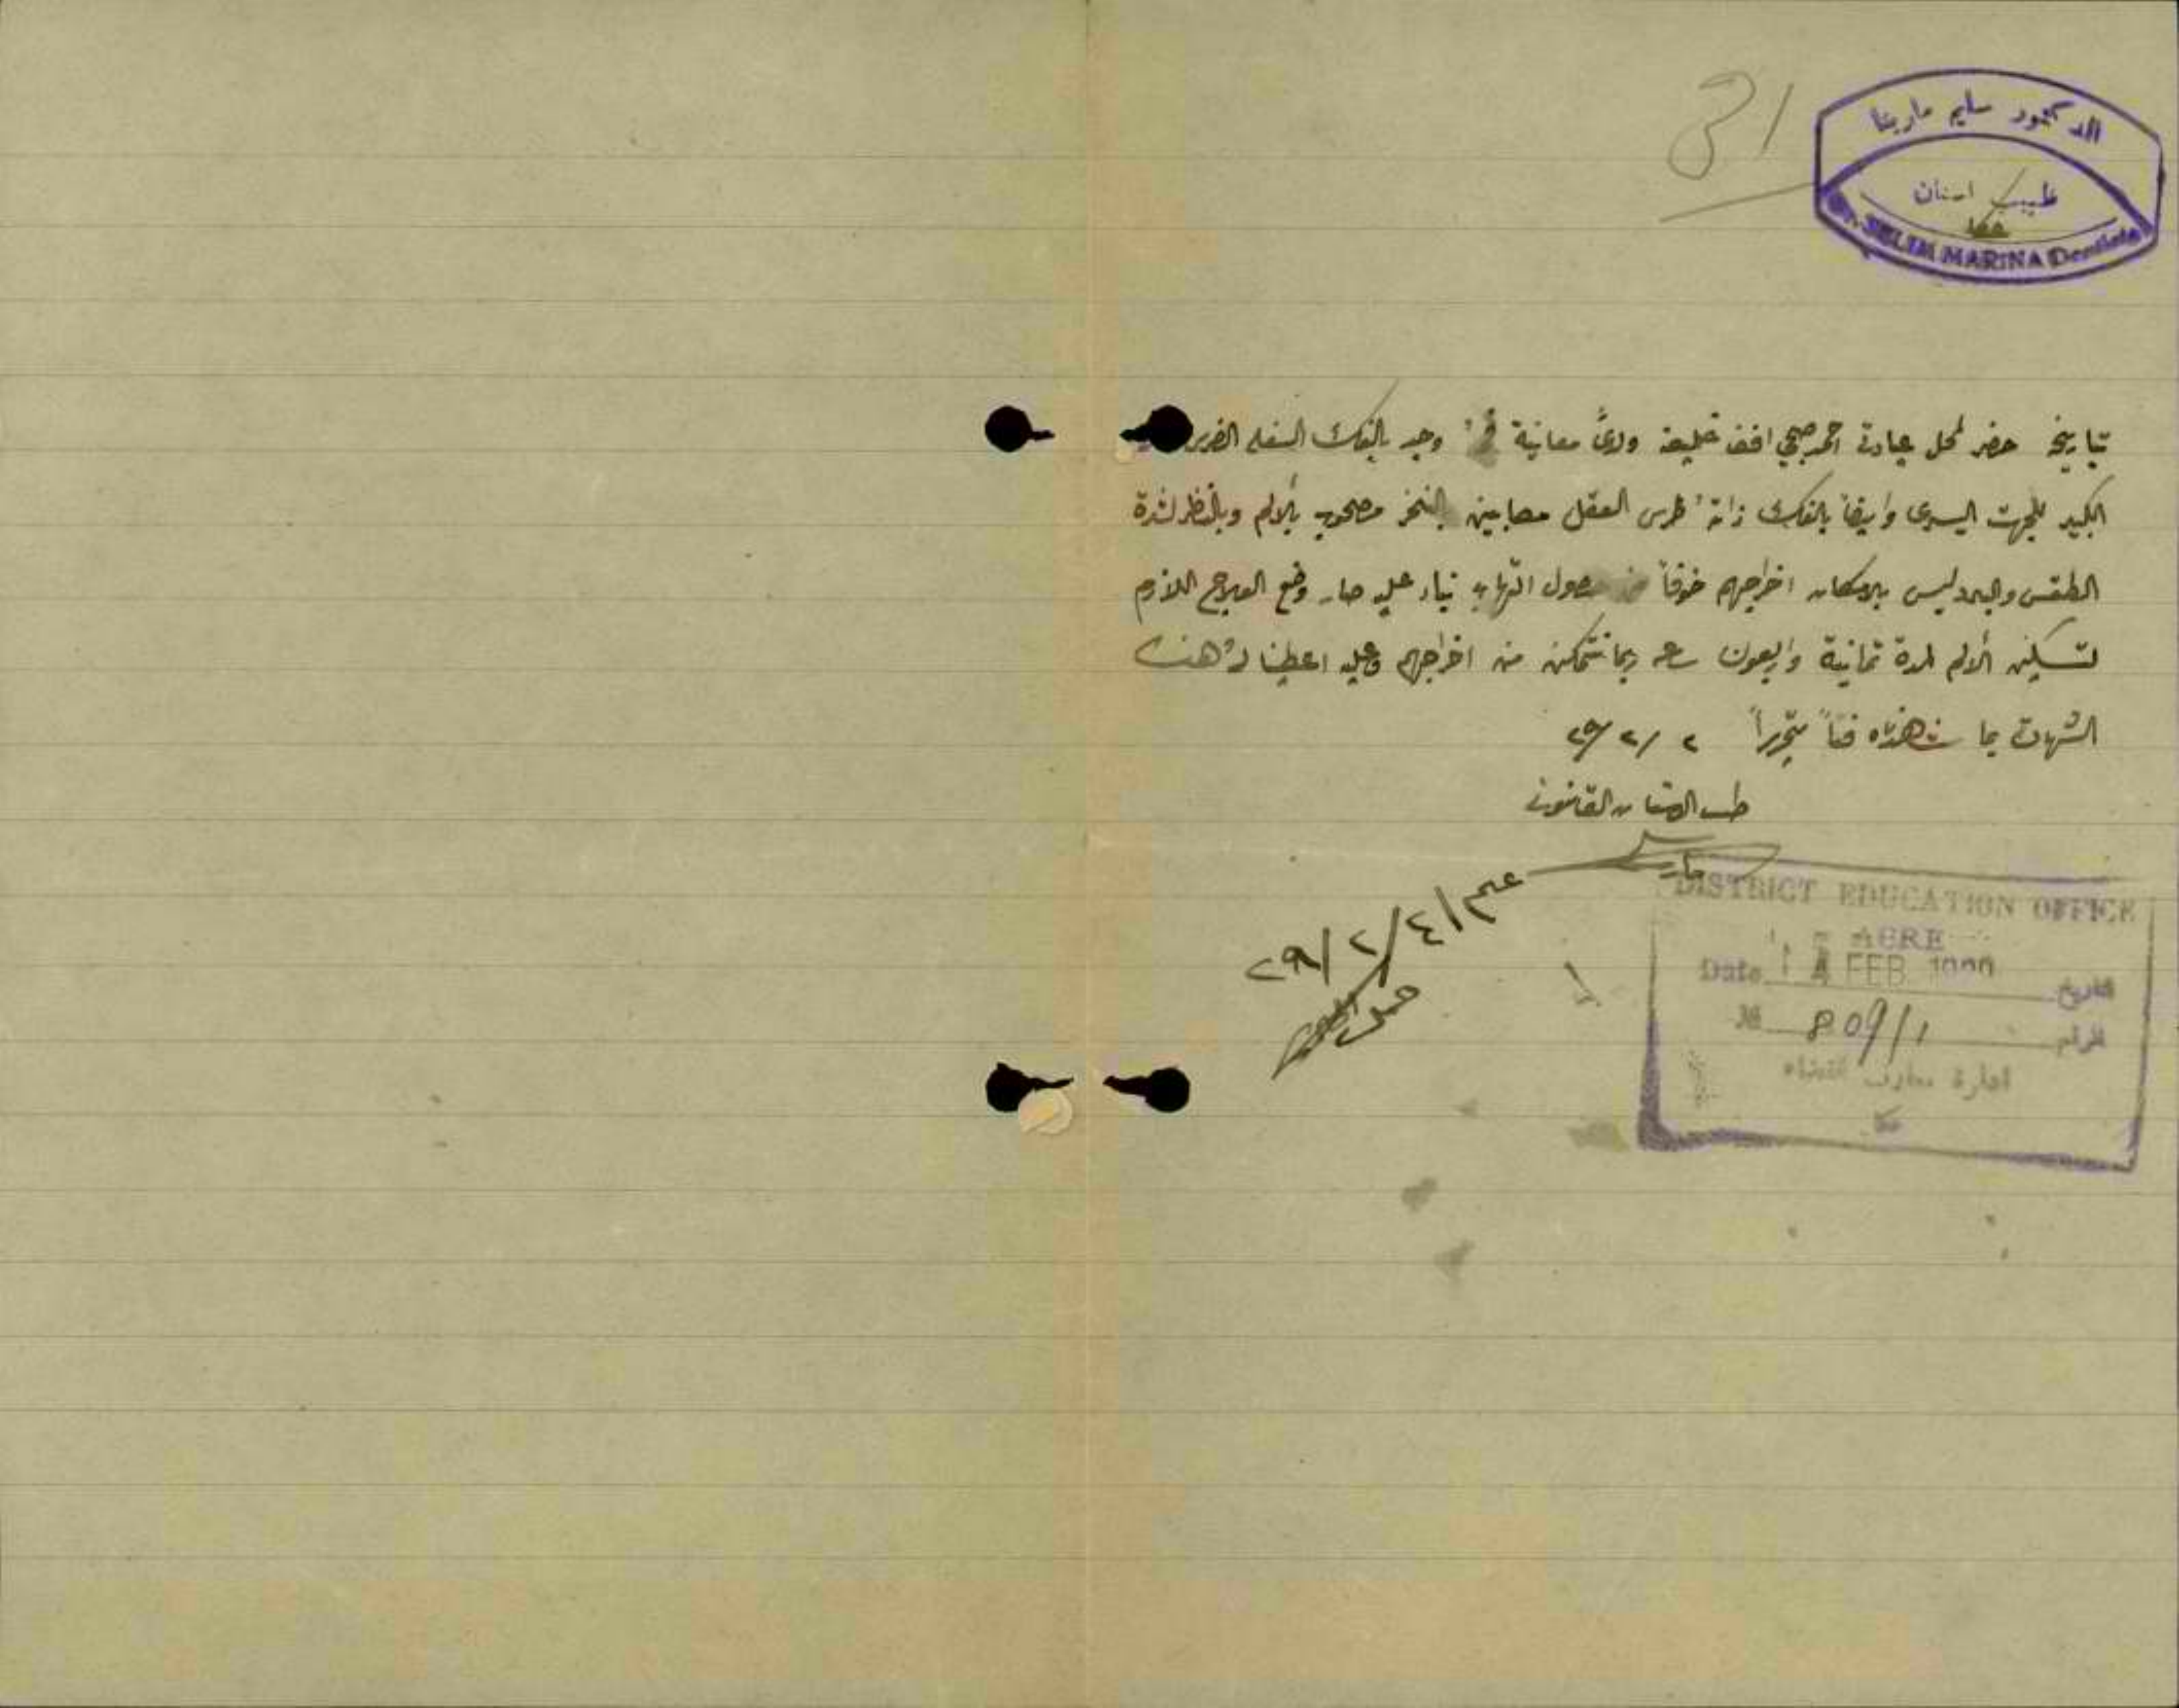 31
الدكتور سليم مارينا
طبيب اسنان
عكا
Dr. SELIM MARINA Dentiste
بتاريخه حضر لمحل عيادتي احمد صبحي افندي خليفه ولدى معاينة وجد بالفك السفلي الضرس
الكبير للجهت اليسرى وايضاً بالفك ذاته ضرس العقل مصابين بالنخر مصحوب بألالم وبالنظر لشدة
الطقس والبرد ليس بالامكان اخراجهم خوفاً من حصول التهاب بناء عليه صار وضع العلاج اللازم
لتسكين ألالم لمدة ثمانية واربعون ساعه ريثما نتمكن من اخراجهم وعليه اعطينا له هذه
الشهادة بما شاهدناه فناً تحريراً ٢ / ٢ / ٢٩
طبيب الاسنان القانوني
مارينا
٢٩/٢/٤
DISTRICT EDUCATION OFFICE
ACRE
Date 4 FEB التاريخ
№ 809/1 الرقم
ادارة معارف القضاء
عكا